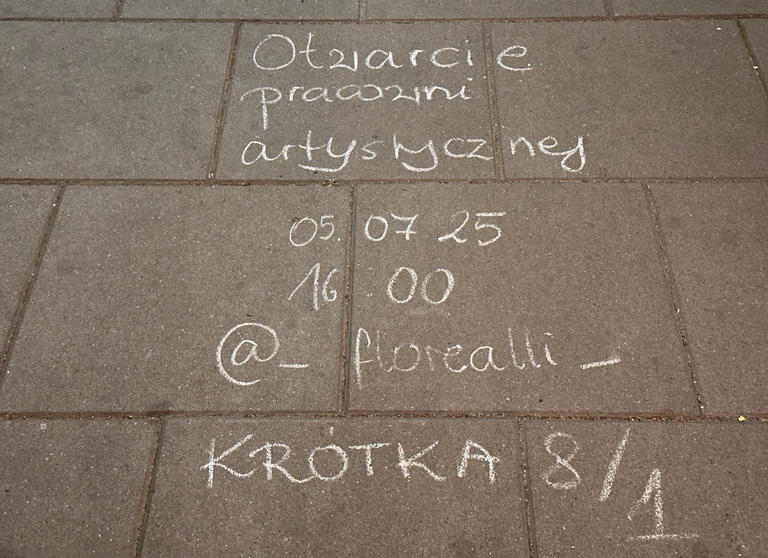 Otwarcie
pracowni
artystycznej
05. 07 25
16 00
@_florealli_
KRÓTKA 8/1